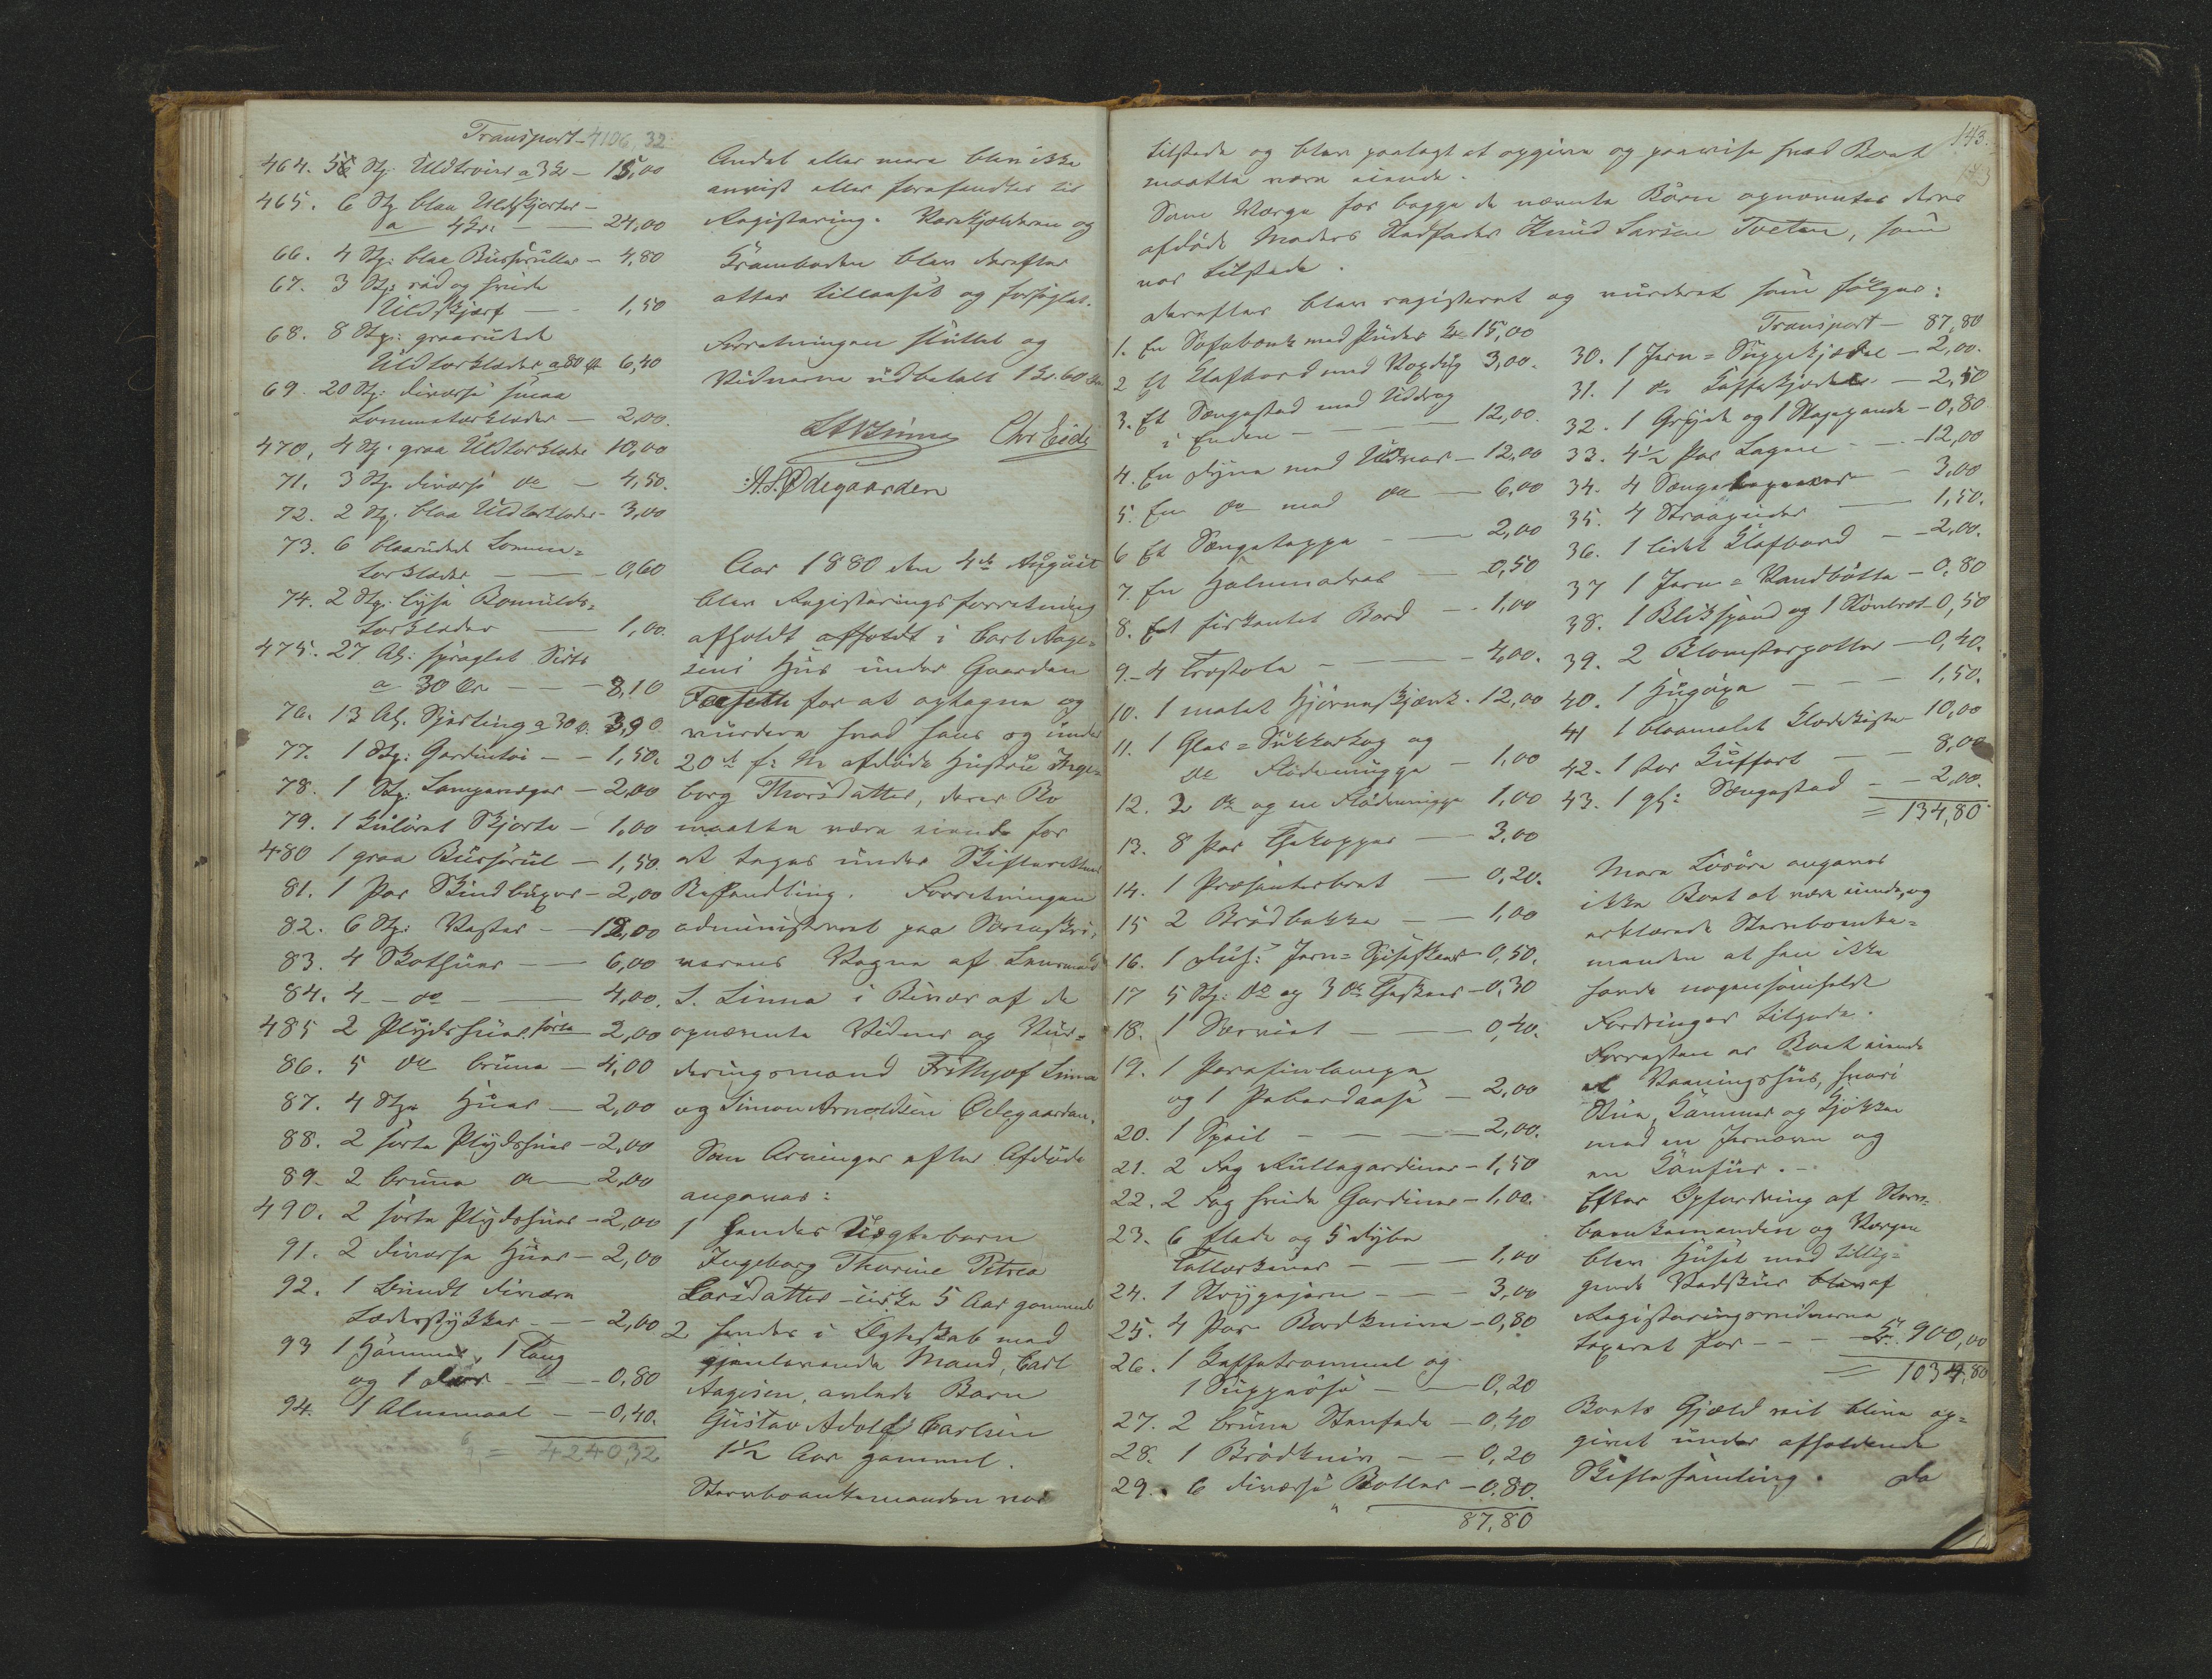 Transport - 4106,32
464. 5 Stk: Uldtrøier a 3 Kr - 15,00
465. 6 Stk blaa Uldskjorter -
a 4 Kr. - 24,00
66. 4 Stk: blaa Busseruller - 4,80
67. 3 Stk: rød og hvide
Uldskjærf - 1,50
68. 8 Stk: graarudede
Uldtørklæder a 80 Ø 6,40
69. 20 Stk: diverse smaa
Lommetørklæder - 2,00.
470. 4 Stk: graa Uldtørklæder 10,00
71. 3 Stk diverse do - 4,50.
72. 2 Stk. blaa Uldtørklæder - 3,00
73. 6 blaarudede Lomme=
tørklæder - 0,60
74. 2 Stk: lyse Bomulds=
tørklæder - 1,00.
475. 27 Al: spraglet Sirts
a 30 Øre - 8,10
76. 13 Al. Sjerting a 30 ø. 3,90
77. 1 Stk: Gardintøi - 1,50.
78. 1 Stk: Lampevæger - 2,00
79. 1 kulørt Skjorte - 1,00
480 1 graa Busserul - 1,50.
81. 1 Par Skindbuxer - 2,00
82. 6 Stk: Vester - 12,00
83. 4 Stk Huer - 6,00
84. 4 - do - 4,00.
485 2 Plydshuer sorte 2,00
86. 5 do brune - 4,00
87. 4 Stk Huer - 2,00
88. 2 sorte Plydshuer - 2,00
89. 2 brune do - 2,00
490. 2 sorte Plydshuer - 2,00
91. 2 diverse Huer - 2,00
92. 1 Bundt diverse
Læderstykker - 2,00
93 1 Hammer, 1 Tang
og 1 - 0,80
94. 1 Alnemaal - 0,40.
= 4240,32
Andet eller mere blev ikke
anvist eller forefandtes til
Registrering. Varekjælderen og
Kramboden blev derefter
atter tillaaset og forseglet.
Forretningen sluttet og
Vidnerne udbetalt 1 Kr. 60 Øre
Linna Chr Eide
A. S. Ødegaarden
Aar 1880 den 4de August
blev Registreringsforretning
afholdt afholdt i Carl Aage=
sens Hus under Gaarden
for at optegne og
vurdere hvad hans og under
20de f: M afdøde Hustru Inge=
borg Thorsdatter, deres Bo
maatte være eiende for
at tages under Skifterettens
Behandling. Forretningen
administreret paa Sorenskri=
verens Vegne af Lensmand
S. Linna i Bivær af de
opnævnte Vidner og Vur=
deringsmænd Frithjof Linna
og Simon Arnoldsen Ødegaarden.
Som Arvinger efter Afdøde
angaves:
1 hendes Uægtebarn
Ingeborg Thorine Petrea
Larsdatter cirka 5 Aar gammel
2 hendes i Ægteskab med
gjenlevende Mand, Carl
Aagesen, avlede Barn
Gustav Adolf Carlsen
1½ Aar gammel.
Stervboenkemanden var
143.
tilstede og blev paalagt at opgive og paavise hvad Boet
maatte være eiende.
Som Værge for begge de nævnte Børn opnævntes deres
afdøde Moders Stedfader Knud Larsen Tveten, som
var tilstede.
Derefter blev registreret og vurderet som følger:
1. En Sofabænk med Puder Kr 15,00
2 Et Klafbord med Voxdug 3,00.
3. Et Sengested med Uddrag
i Enden - 12,00.
4. En Dyne med Uldvar - 12,00
5. En do med do - 6,00
6 Et Sengeteppe - 2,00
7. En Halmmadras - 0,50
8. Et firkantet Bord - 1,00
9. 4 Træstole - 4,00.
10. 1 malet Hjørneskjænk. 12,00
11. 1 Glas=Sukkerkop og
do Flødemugge - 1,00
12. 2 do og en Flødemugge 1,00
13. 8 Par Thekopper - 3,00
14. 1 Præsenterbret - 0,20.
15 2 Brødbakke - 1,00
16. 1 Dus: Jern=Spiseskeer 0,50.
17 5 Stk: do og 3 do Theskeer - 0,30
18. 1 Serviet - 0,40.
19. 1 Parafinlampe
og 1 Peberdaase - 2,00
20. 1 Speil - 2,00.
21. 2 Fag Rullegardiner - 1,50
22. 2 Fag hvide Gardiner - 1,00.
23. 6 flade og 5 dybe
Tallerkener - 1,00
24. 1 Strygejern - 3,00
25. 4 Par Bordknive - 0,80
26. 1 Kaffetrommel og
1 Suppeøse - 0,20
27. 2 brune Stenfade - 0,40
28. 1 Brødkniv - 0,20
29. 6 diverse Boller - 0,80.
87,80
Transport - 87,80
30. 1 Jern=Suppekjedel - 2,00.
31. 1 do Kaffekjedel - 2,50
32. 1 Gryde og 1 Stegepande - 0,80
33. 4½ Par Lagen - 12,00
34. 4 - 3,00
35. 4 Straapuder - 1,50.
36. 1 lidet Klafbord - 2,00.
37 1 Jern=Vandbøtte - 0,80
38. 1 Blikspand og 1 - 0,50
39. 2 Blomsterpotter - 0,40.
40. 1 Hugøxe - 1,50.
41 1 blaamalet Klædekiste 10,00
42. 1 Par Kuffert - 8,00
43. 1 gl: Sengested - 2,00.
= 134,80
Mere Løsøre angaves
ikke Boet at være eiende, og
erklærede Stervboenke=
manden at han ikke
havde nogensomhelst
Fordringer tilgode.
Forresten er Boet eiende
et Vaaningshus, hvori
Stue, Kammer og Kjøkken
med en Jernovn og
en Komfur. -
Efter Opfordring af Sterv=
boenkemanden og Værgen
blev Huset med tillig=
gende Vedskur blev af
Registreringsvidnerne
taxeret for - Kr. 900,00
= 1034,80
Boets Gjæld vil blive op=
givet under afholdende
Skiftesamling. Da